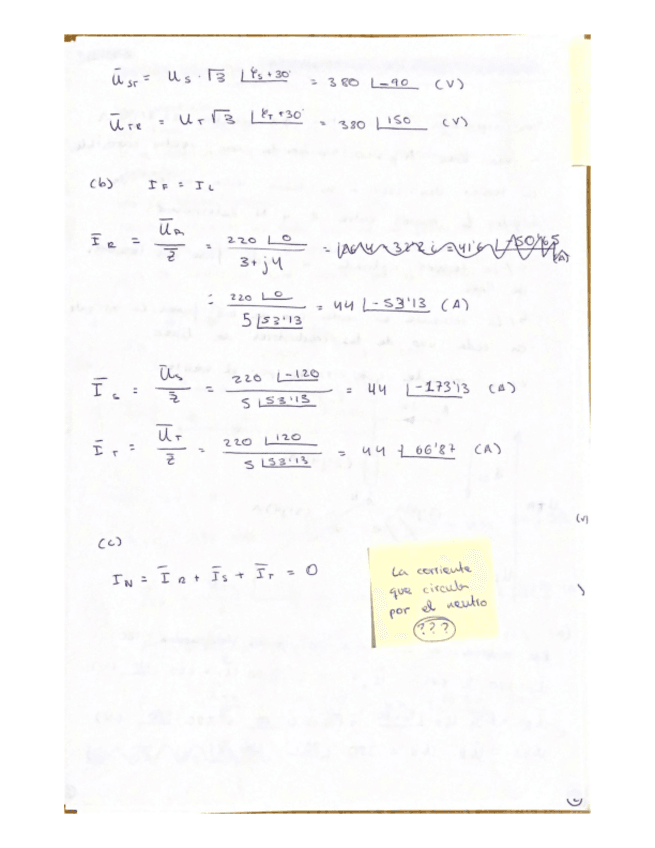 Ū ST = U S · √3 ∠φS+30 = 380 ∠-90 (V)
Ū TR = U T √3 ∠φT+30 = 380 ∠150 (V)
(b) I F = I L
Ī R = Ū R / Z̄ = 220 ∠0 / 3+j4 =
= 220 ∠0 / 5 ∠53'13 = 44 ∠-53'13 (A)
Ī S = Ū S / Z̄ = 220 ∠-120 / 5 ∠53'13 = 44 ∠-173'13 (A)
Ī T = Ū T / Z̄ = 220 ∠120 / 5 ∠53'13 = 44 ∠66'87 (A)
(c)
I N = Ī R + Ī S + Ī T = 0
La corriente
que circula
por el neutro
???
(V)